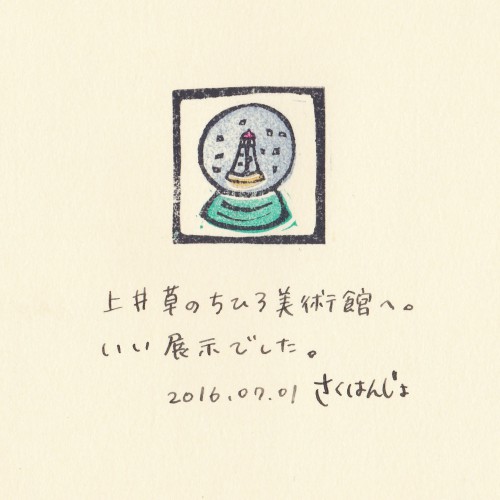 上井草のちひろ美術館へ。
いい展示でした。
2016.07.01 さくはんじょ